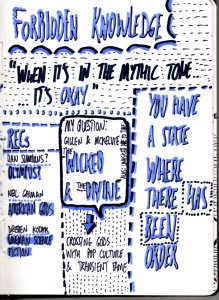 FORBIDDEN KNOWLEDGE
"WHEN IT'S IN THE MYTHIC TONE...
...IT'S OKAY"
RECS
DAN SIMMONS?
OLYMPUS?
NEIL GAIMAN
AMERICAN GODS
KODIAK
SCIENCE
FICTION
MY QUESTION:
GILLEN & MCKELVIE
THE
WICKED
& THE DIVINE
CROSSING GODS
WITH POP CULTURE
& TRANSIENT FAME
YOU HAVE
A STATE
WHERE
THERE HAS
BEEN
ORDER